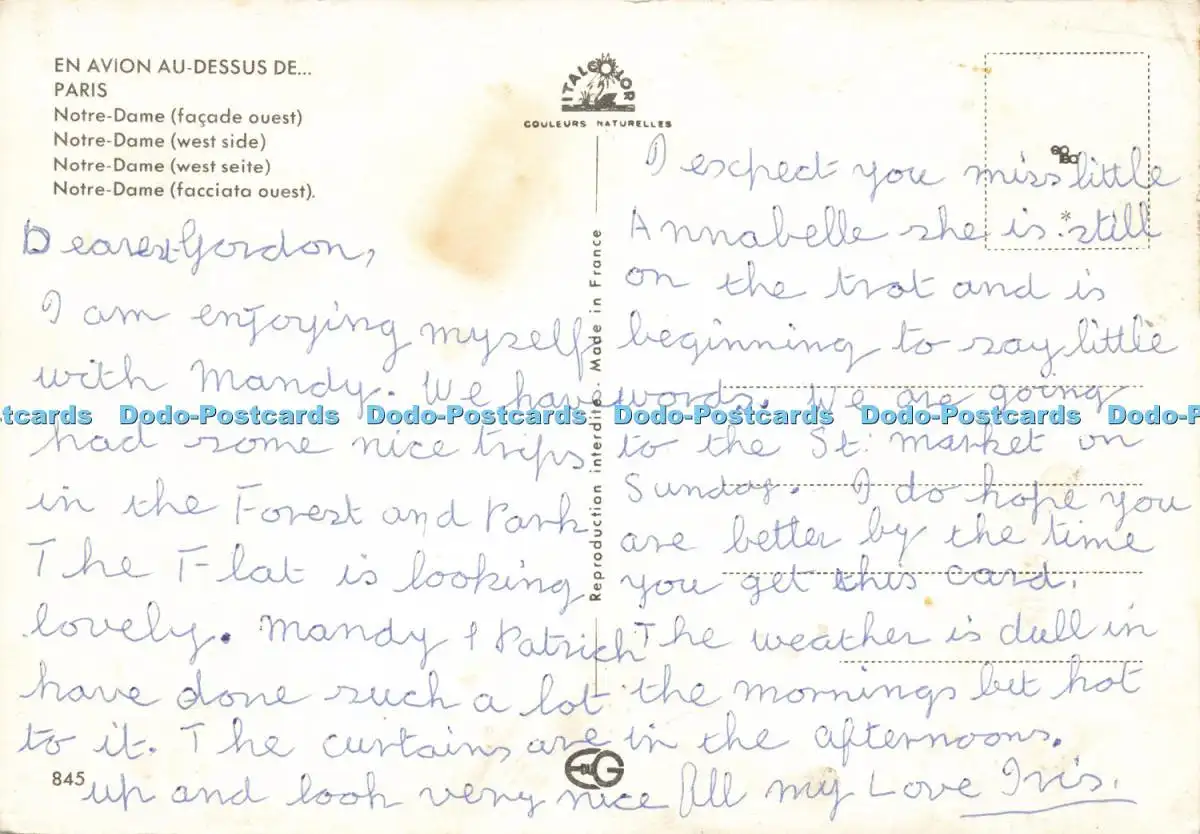 EN AVION AU-DESSUS DE...
PARIS
Notre-Dame (façade ouest)
Notre-Dame (west side)
Notre-Dame (west seite)
Notre-Dame (facciata ouest).
ITALCOLOR
COULEURS NATURELLES
Dearest Gordon,
I am enjoying myself
with Mandy. We have
had some nice trips
in the Forest and Park
The Flat is looking
lovely. Mandy & Patrick
have done such a lot
to it. The curtains are
up and look very nice
845
Reproduction interdite. Made in France
I expect you miss little
Annabelle she is still
on the trot and is
beginning to say little
words. We are going
to the St. market on
Sunday. I do hope you
are better by the time
you get this card.
The weather is dull in
the mornings but hot
in the afternoons.
All my Love Iris.
Dodo-Postcards Dodo-Postcards Dodo-Postcards Dodo-Postcards